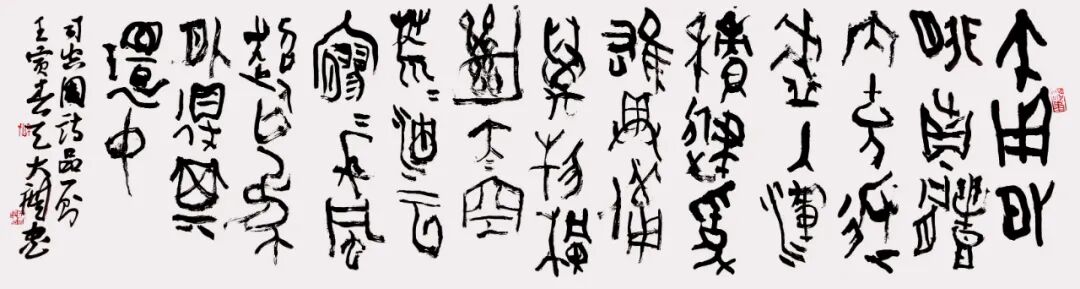 大用外
腓真體
内充返
虛入渾
積健為
雄具備
萬物橫
絕太空
荒荒油云
寥寥長風
超以象
外得其
環中
司空圖詩品一則
壬寅春天大書